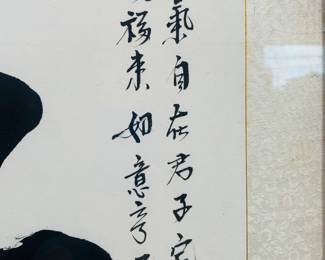 氣自在君子宅
福來如意亨